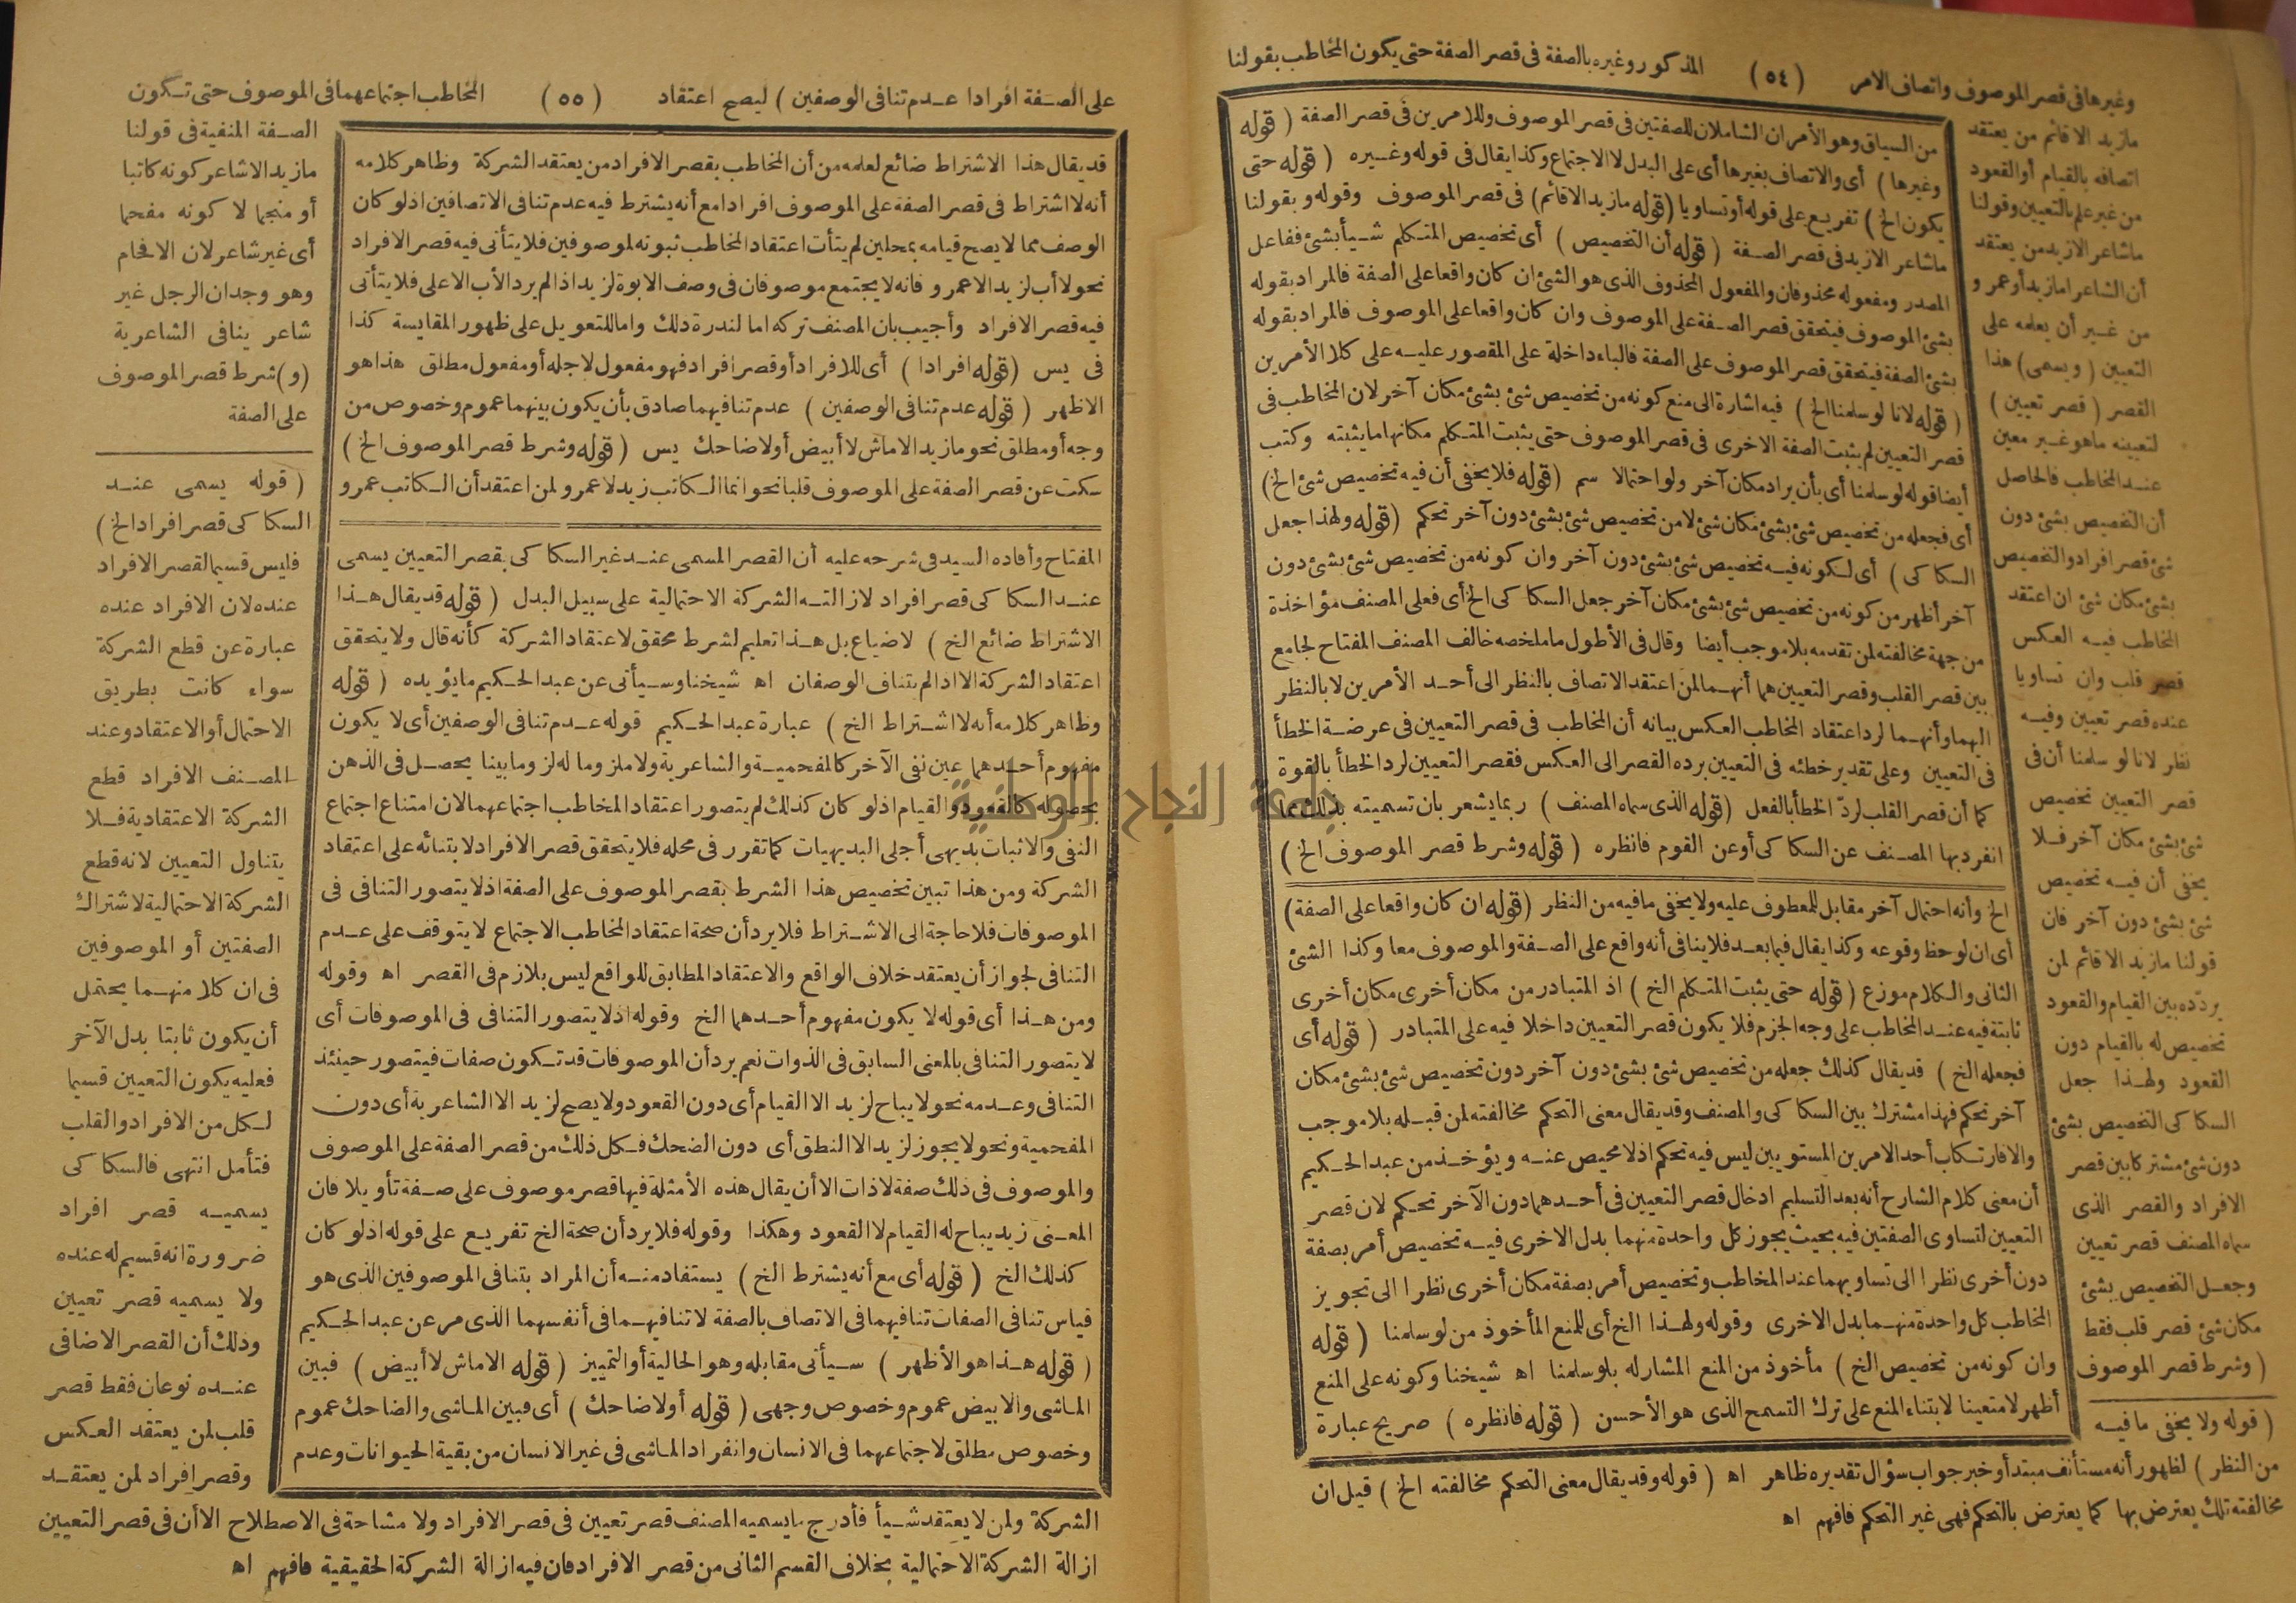 وغيرها فى قصر الموصوف واتصاف الامر (٥٤) المذكور وغيره بالصفة فى قصر الصفة حتى يكون المخاطب بقولنا
مازيد الا قائم من يعتقد
اتصافه بالقيام أو القعود
من غير علم بالتعيين وقولنا
ماشاعر الازيد من يعتقد
أن الشاعر امازيد أو عمرو
من غير أن يعلمه على
التعيين (ويسمى) هذا
القصر (قصر تعيين)
لتعيينه ماهو غير معين
عند المخاطب فالحاصل
أن التخصيص بشئ دون
شئ قصر افراد والتخصيص
بشئ مكان شئ ان اعتقد
المخاطب فيه العكس
قصر قلب وان تساويا
عنده قصر تعيين وفيه
نظر لانا لو سلمنا أن فى
قصر التعيين تخصيص
شئ بشئ مكان آخر فلا
يخفى أن فيه تخصيص
شئ بشئ دون آخر فان
قولنا مازيد الا قائم لمن
يردّده بين القيام والقعود
تخصيص له بالقيام دون
القعود ولهذا جعل
السكاكى التخصيص بشئ
دون شئ مشتركا بين قصر
الافراد والقصر الذى
سماه المصنف قصر تعيين
وجعل التخصيص بشئ
مكان شئ قصر قلب فقط
(وشرط قصر الموصوف
من السياق وهو الأمران الشاملان للصفتين فى قصر الموصوف وللامرين فى قصر الصفة (قوله
وغيرها) أى والاتصاف بغيرها أى على البدل لا الاجتماع وكذا يقال فى قوله وغيره (قوله حتى
يكون الخ) تفريع على قوله أو تساويا (قوله مازيد الاقائم) فى قصر الموصوف وقوله وبقولنا
ماشاعر الازيد فى قصر الصفة (قوله أن التخصيص) أى تخصيص المتكلم شيأ بشئ ففاعل
المصدر ومفعوله محذوفان والمفعول المحذوف الذى هو الشئ ان كان واقعا على الصفة فالمراد بقوله
بشئ الموصوف فيتحقق قصر الصفة على الموصوف وان كان واقعا على الموصوف فالمراد بقوله
بشئ الصفة فيتحقق قصر الموصوف على الصفة فالباء داخلة على المقصور عليه على كلا الأمرين
(قوله لانا لو سلمنا الخ) فيه اشارة الى منع كونه من تخصيص شئ بشئ مكان آخر لان المخاطب فى
قصر التعيين لم يثبت الصفة الاخرى فى قصر الموصوف حتى يثبت المتكلم مكانها ما يثبته وكتب
أيضا قوله لو سلمنا أى بأن يراد مكان آخر ولو احتمالا سم (قوله فلا يخفى أن فيه تخصيص شئ الخ)
أى فجعله من تخصيص شئ بشئ مكان شئ لا من تخصيص شئ بشئ دون آخر تحكم (قوله ولهذا جعل
السكاكى) أى لكونه فيه تخصيص شئ بشئ دون آخر وان كونه من تخصيص شئ بشئ دون
آخر أظهر من كونه من تخصيص شئ بشئ مكان آخر جعل السكاكى الخ أى فعلى المصنف مؤاخذة
من جهة مخالفته لمن تقدمه بلا موجب أيضا وقال فى الأطول ما ملخصه خالف المصنف المفتاح لجامع
بين قصر القلب وقصر التعيين هما أنهما لمن اعتقد الاتصاف بالنظر الى أحد الأمرين لا بالنظر
اليهما وأنهما لرد اعتقاد المخاطب العكس بيانه أن المخاطب فى قصر التعيين فى عرضة الخطأ
فى التعيين وعلى تقدير خطئه فى التعيين برده القصر الى العكس فقصر التعيين لرد الخطأ بالقوة
كما أن قصر القلب لردّ الخطأ بالفعل (قوله الذى سماه المصنف) ربما يشعر بان تسميته بذلك مما
انفرد بها المصنف عن السكاكى أو عن القوم فانظره (قوله وشرط قصر الموصوف الخ)
الخ وأنه احتمال آخر مقابل للمعطوف عليه ولا يخفى مافيه من النظر (قوله ان كان واقعا على الصفة)
أى ان لوحظ وقوعه وكذا يقال فيما بعد فلا ينافى أنه واقع على الصفة والموصوف معا وكذا الشئ
الثانى والكلام موزع (قوله حتى يثبت المتكلم الخ) اذ المتبادر من مكان أخرى مكان أخرى
ثابتة فيه عند المخاطب على وجه الجزم فلا يكون قصر التعيين داخلا فيه على المتبادر (قوله أى
فجعله الخ) قد يقال كذلك جعله من تخصيص شئ بشئ دون آخر دون تخصيص شئ بشئ مكان
آخر تحكم فهذا مشترك بين السكاكى والمصنف وقد يقال معنى التحكم مخالفته لمن قبله بلا موجب
والا فارتكاب أحد الامرين المستويين ليس فيه تحكم اذ لا محيص عنه ويؤخذ من عبد الحكيم
أن معنى كلام الشارح أنه بعد التسليم ادخال قصر التعيين فى أحدهما دون الآخر تحكم لان قصر
التعيين لتساوى الصفتين فيه بحيث يجوز كل واحدة منهما بدل الاخرى فيه تخصيص أمر بصفة
دون أخرى نظرا الى تساويهما عند المخاطب وتخصيص أمر بصفة مكان أخرى نظرا الى تجويز
المخاطب كل واحدة منهما بدل الاخرى وقوله ولهذا الخ أى للمنع المأخوذ من لو سلمنا (قوله
وان كونه من تخصيص الخ) مأخوذ من المنع المشار له بلو سلمنا اه شيخنا وكونه على المنع
أظهر لا متعينا لابتناء المنع على ترك التسمح الذى هو الأحسن (قوله فانظره) صريح عبارة
(قوله ولا يخفى ما فيه
من النظر) لظهور أنه مستأنف مبتدأ وخبر جواب سؤال تقديره ظاهر اه (قوله وقد يقال معنى التحكم مخالفته الخ) قيل ان
مخالفته تلك يعترض بها كما يعترض بالتحكم فهى غير التحكم فافهم اه
على الصفة افرادا عدم تنافى الوصفين) ليصح اعتقاد (٥٥) المخاطب اجتماعهما فى الموصوف حتى تكون
الصفة المنفية فى قولنا
مازيد الا شاعر كونه كاتبا
أو منجما لا كونه مفحما
أى غير شاعر لان الافحام
وهو وجدان الرجل غير
شاعر ينافى الشاعرية
(و) شرط قصر الموصوف
على الصفة
قد يقال هذا الاشتراط ضائع لعلمه من أن المخاطب بقصر الافراد من يعتقد الشركة وظاهر كلامه
أنه لا اشتراط فى قصر الصفة على الموصوف افرادا مع أنه يشترط فيه عدم تنافى الاتصافين اذ لو كان
الوصف مما لا يصح قيامه بمحلين لم يتأت اعتقاد المخاطب ثبوته لموصوفين فلا يتأتى فيه قصر الافراد
نحو لا أب لزيد الا عمرو فانه لا يجتمع موصوفان فى وصف الابوة لزيد اذا لم يرد الأب الاعلى فلا يتأتى
فيه قصر الافراد وأجيب بان المصنف تركه اما لندرة ذلك واما للتعويل على ظهور المقايسة كذا
فى يس (قوله افرادا) أى للافراد أو قصر افراد فهو مفعول لاجله أو مفعول مطلق هذا هو
الاظهر (قوله عدم تنافى الوصفين) عدم تنافيهما صادق بأن يكون بينهما عموم وخصوص من
وجه أو مطلق نحو مازيد الاماش لا أبيض أو لا ضاحك يس (قوله وشرط قصر الموصوف الخ)
سكت عن قصر الصفة على الموصوف قلبا نحو انما الكاتب زيد لا عمرو لمن اعتقد أن الكاتب عمرو
المفتاح وأفاده السيد فى شرحه عليه أن القصر المسمى عند غير السكاكى بقصر التعيين يسمى
عند السكاكى قصر افراد لازالته الشركة الاحتمالية على سبيل البدل (قوله قد يقال هذا
الاشتراط ضائع الخ) لا ضياع بل هذا تعليم لشرط محقق لاعتقاد الشركة كأنه قال ولا يتحقق
اعتقاد الشركة الا اذا لم يتناف الوصفان اه شيخنا وسيأتى عن عبد الحكيم ما يؤيده (قوله
وظاهر كلامه أنه لا اشتراط الخ) عبارة عبد الحكيم قوله عدم تنافى الوصفين أى لا يكون
مفهوم أحدهما عين نفى الآخر كالمفحمية والشاعرية ولا ملزوما له لزوما بينا يحصل فى الذهن
بحصوله كالقعود والقيام اذ لو كان كذلك لم يتصور اعتقاد المخاطب اجتماعهما لان امتناع اجتماع
النفى والاثبات بديهى أجلى البديهيات كما تقرر فى محله فلا يتحقق قصر الافراد لابتنائه على اعتقاد
الشركة ومن هذا تبين تخصيص هذا الشرط بقصر الموصوف على الصفة اذ لا يتصور التنافى فى
الموصوفات فلا حاجة الى الاشتراط فلا يرد أن صحة اعتقاد المخاطب الاجتماع لا يتوقف على عدم
التنافى لجواز أن يعتقد خلاف الواقع والاعتقاد المطابق للواقع ليس بلازم فى القصر اه وقوله
ومن هذا أى قوله لا يكون مفهوم أحدهما الخ وقوله اذ لا يتصور التنافى فى الموصوفات أى
لا يتصور التنافى بالمعنى السابق فى الذوات نعم يرد أن الموصوفات قد تكون صفات فيتصور حينئذ
التنافى وعدمه نحو لا يباح لزيد الا القيام أى دون القعود ولا يصح لزيد الا الشاعرية أى دون
المفحمية ونحو لا يجوز لزيد الا النطق أى دون الضحك فكل ذلك من قصر الصفة على الموصوف
والموصوف فى ذلك صفة لا ذات الا أن يقال هذه الأمثلة فيها قصر موصوف على صفة تأويلا فان
المعنى زيد يباح له القيام لا القعود وهكذا وقوله فلا يرد أن صحة الخ تفريع على قوله اذ لو كان
كذلك الخ (قوله أى مع أنه يشترط الخ) يستفاد منه أن المراد بتنافى الموصوفين الذى هو
قياس تنافى الصفات تنافيهما فى الاتصاف بالصفة لا تنافيهما فى أنفسهما الذى مر عن عبد الحكيم
(قوله هذا هو الأظهر) سيأتى مقابله وهو الحالية أو التمييز (قوله الاماش لا أبيض) فبين
الماشى والابيض عموم وخصوص وجهى (قوله أو لا ضاحك) أى فبين الماشى والضاحك عموم
وخصوص مطلق لاجتماعهما فى الانسان وانفراد الماشى فى غير الانسان من بقية الحيوانات وعدم
(قوله يسمى عند
السكاكى قصر افراد الخ)
فليس قسيما لقصر الافراد
عنده لان الافراد عنده
عبارة عن قطع الشركة
سواء كانت بطريق
الاحتمال أو الاعتقاد وعند
المصنف الافراد قطع
الشركة الاعتقادية فلا
يتناول التعيين لانه قطع
الشركة الاحتمالية لاشتراك
الصفتين أو الموصوفين
فى ان كلا منهما يحتمل
أن يكون ثابتا بدل الآخر
فعليه يكون التعيين قسيما
لكل من الافراد والقلب
فتأمل انتهى فالسكاكى
يسميه قصر افراد
ضرورة انه قسيم له عنده
ولا يسميه قصر تعيين
وذلك أن القصر الاضافى
عنده نوعان فقط قصر
قلب لمن يعتقد العكس
وقصر افراد لمن يعتقد
الشركة ولمن لا يعتقد شيأ فأدرج ما يسميه المصنف قصر تعيين فى قصر الافراد ولا مشاحة فى الاصطلاح الا أن فى قصر التعيين
ازالة الشركة الاحتمالية بخلاف القسم الثانى من قصر الافراد فان فيه ازالة الشركة الحقيقية فافهم اه
جامعة النجاح الوطنية